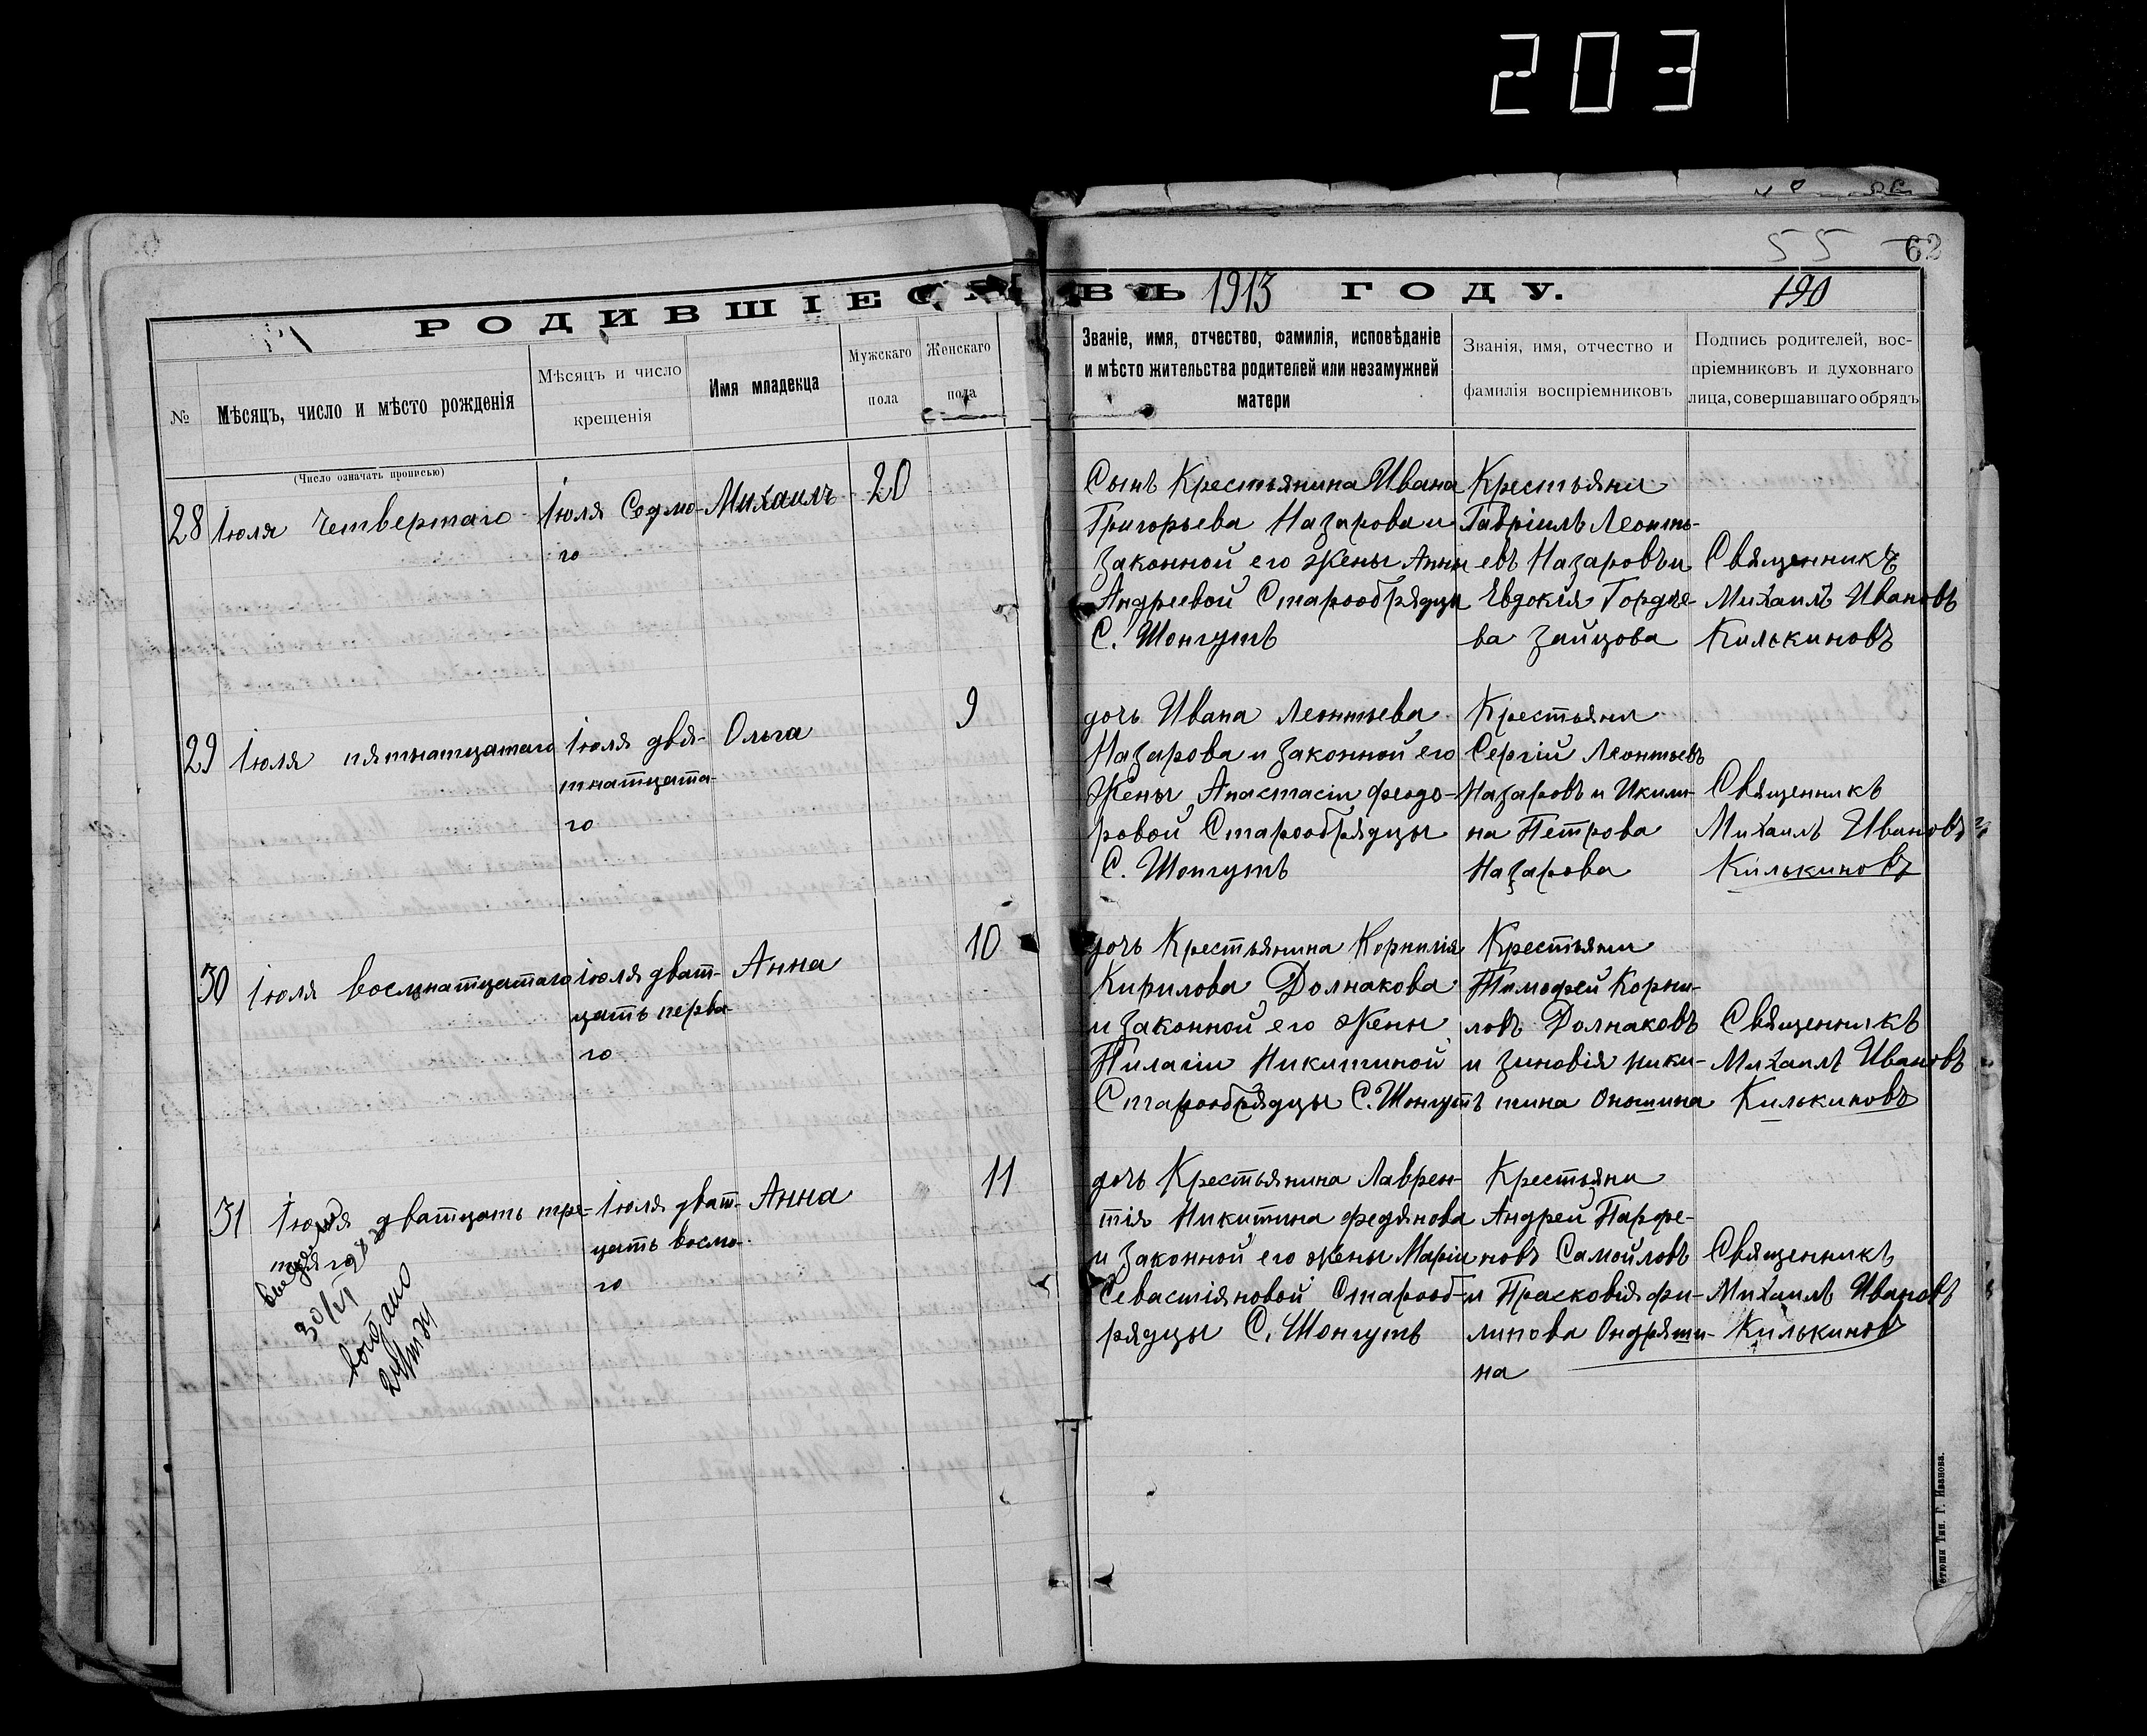 203
55 62
РОДИВШІЕСЯ ВЪ 1913 ГОДУ.
190
№
Мѣсяцъ, число и мѣсто рожденія
(Число означать прописью)
Мѣсяцъ и число
крещенія
Имя младенца
Мужскаго
пола
Женскаго
пола
Званіе, имя, отчество, фамилія, исповѣданіе
и мѣсто жительства родителей или незамужней
матери
Званія, имя, отчество и
фамилія воспріемниковъ
Подпись родителей, вос-
пріемниковъ и духовнаго
лица, совершавшаго обрядъ
28
Іюля четвертаго
Іюля Седмо-
го
Михаилъ
20
Сынъ Крестьянина Ивана
Григорьева Назарова и
Законной его жены Анны
Андреевой Старообрядцы
С. Шонгутъ
Крестьяни
Гавріилъ Леонть-
евъ Назаровъ и
Евдокія Гордѣе-
ва Зайцова
Священникъ
Михаилъ Ивановъ
Килькиновъ
29
Іюля пятнатцатаго
Іюля двя-
тнатцата-
го
Ольга
9
дочь Ивана Леонтьева
Назарова и Законной его
Жены Анастасіи Феодо-
ровой Старообрядцы
С. Шонгутъ
Крестьяни
Сергій Леонтьевъ
Назаровъ и Икили-
на Петрова
Назарова
Священникъ
Михаилъ Ивановъ
Килькиновъ
30
Іюля восмнатцатаго
Іюля дват-
цать перва-
го
Анна
10
дочь Крестьянина Корнилія
Кирилова Долнакова
и Законной его Жены
Пилагіи Никитиной
Старообрядцы С. Шонгутъ
Крестьяни
Тимофей Корни-
ловъ Долнаковъ
и Зиновія Ники-
тина Оношина
Священникъ
Михаилъ Ивановъ
Килькиновъ
31
Іюля дватцать тре-
тяго
30/VI
Іюля дват-
цать восмо-
го
Анна
11
дочь Крестьянина Лаврен-
тія Никитина Федянова
и Законной его жены Маріи
Севастіяновой Старооб-
рядцы С. Шонгутъ
Крестьяни
Андрей Парфе-
новъ Самойловъ
и Прасковія Фи-
липова Ондряши-
на
Священникъ
Михаилъ Ивановъ
Килькинов
Тетюши Тип. Г. Иванова.